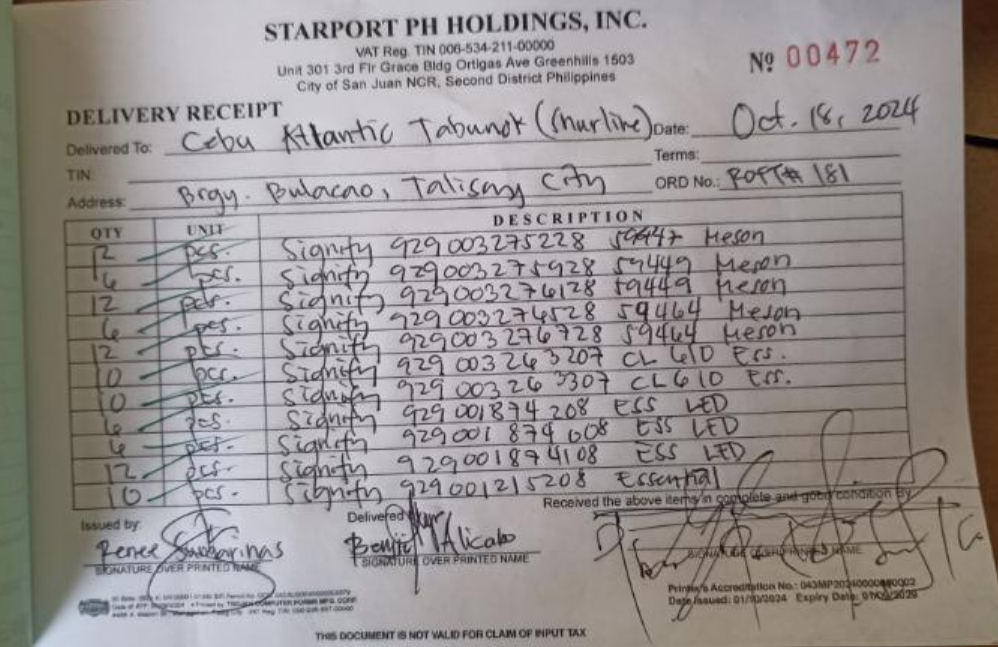 STARPORT PH HOLDINGS, INC.
VAT Reg. TIN 006-534-211-00000
Unit 301 3rd Flr Grace Bldg Ortigas Ave Greenhills 1503
City of San Juan NCR, Second District Philippines
Nº 00472
DELIVERY RECEIPT
Delivered To: Cebu Atlantic Tabunok (Shurline) Date: Oct. 18, 2024
TIN: Terms:
Address: Brgy. Bulacao, Talisay City ORD No.: POPT# 181
QTY UNIT DESCRIPTION
12 pcs. Signify 929003275228 59447 Meson
6 pcs. Signify 929003275928 59449 Meson
12 pcs. Signify 929003276128 59449 Meson
6 pcs. Signify 929003276528 59464 Meson
12 pcs. Signify 929003276728 59464 Meson
10 pcs. Signify 929003263207 CL610 Ess.
10 pcs. Signify 929003263307 CL610 Ess.
6 pcs. Signify 929001874208 ESS LED
6 pcs. Signify 929001874608 ESS LED
12 pcs. Signify 929001874108 ESS LED
10 pcs. Signify 929001215208 Essential
Received the above items in complete and good condition By
Issued by: Delivered
Renee
SIGNATURE OVER PRINTED NAME SIGNATURE OVER PRINTED NAME SIGNATURE OVER PRINTED NAME
Printer's Accreditation No.:
Date Issued: 01/10/2024 Expiry Date:
THIS DOCUMENT IS NOT VALID FOR CLAIM OF INPUT TAX